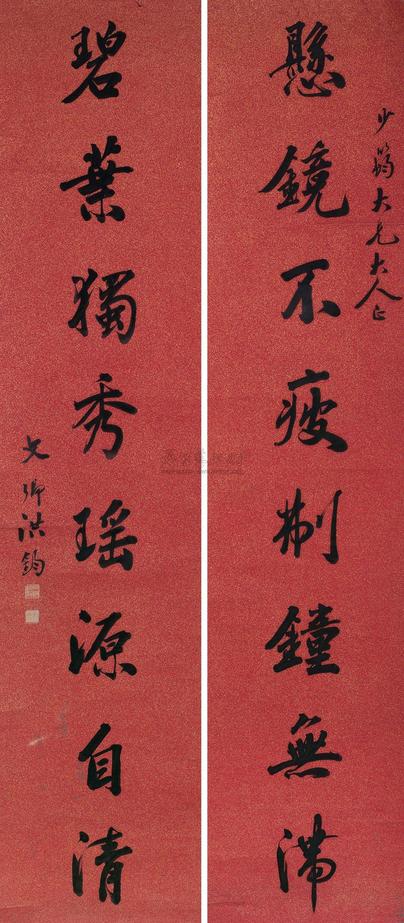 少鶴大兄大人正
懸鏡不疲制鐘無滯
碧葉獨秀瑶源自清
文卿洪鈞